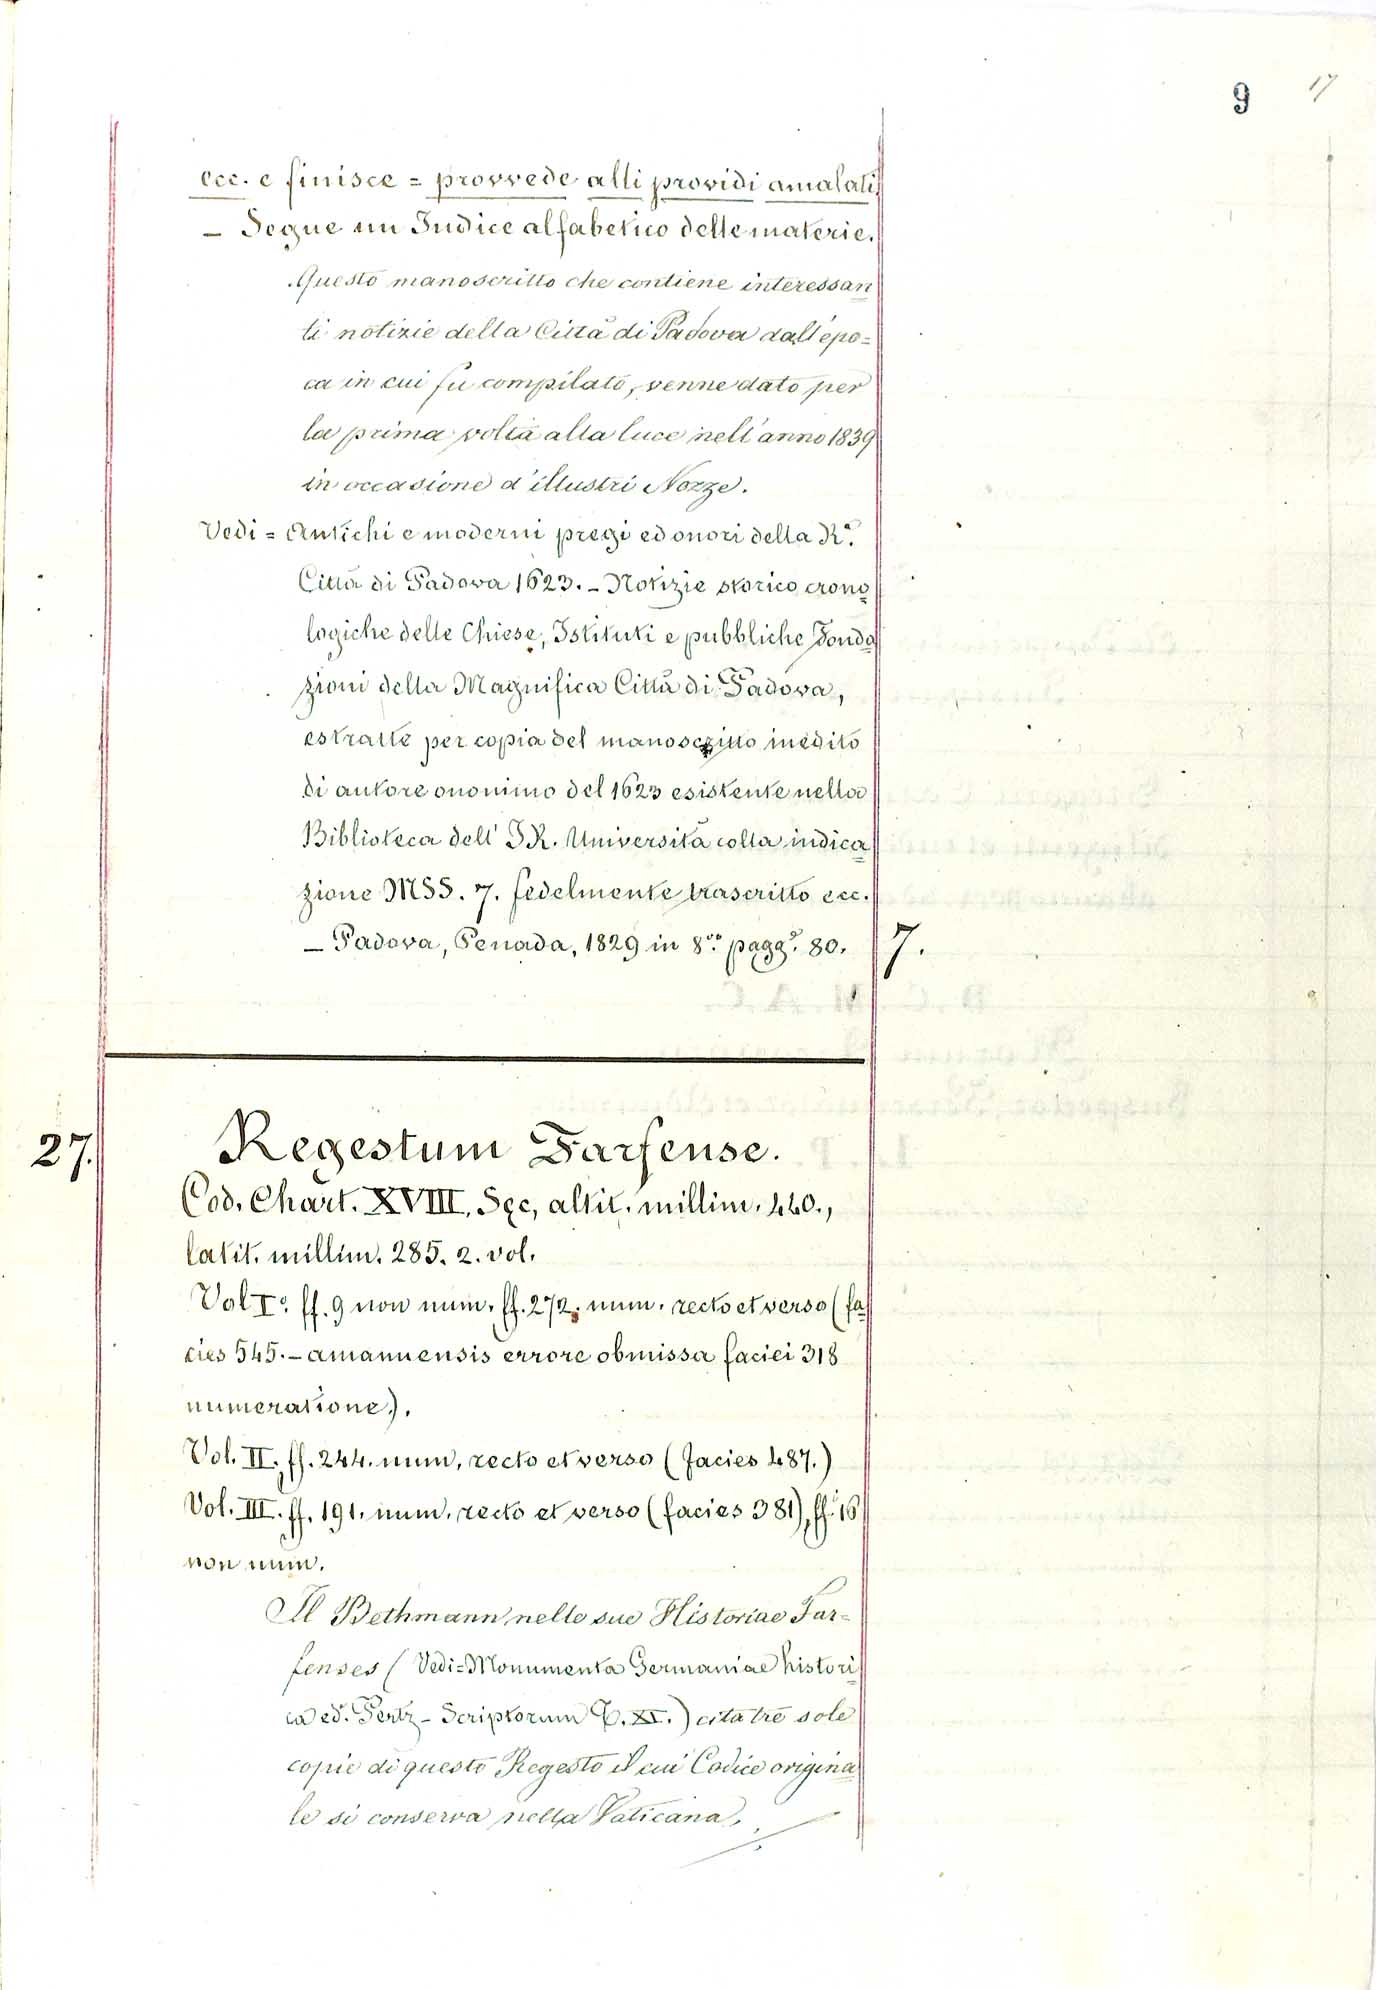 9 17
ecc. e finisce = provvede alli providi amalati.
– Segue un Indice alfabetico delle materie.
Questo manoscritto che contiene interessan=
ti notizie della Città di Padova dall'epo=
ca in cui fu compilato, venne dato per
la prima volta alla luce nell'anno 1839
in occasione d'illustri Nozze.
Vedi = Antichi e moderni pregi ed onori della R.a
Città di Padova 1623. – Notizie storico crono=
logiche delle Chiese, Istituti e pubbliche Fonda=
zioni della Magnifica Città di Padova,
estratte per copia del manoscritto inedito
di autore anonimo del 1623 esistente nella
Biblioteca dell' I R. Università colla indica=
zione MSS. 7. fedelmente trascritto ecc.
– Padova, Penada, 1829 in 8.vo pagg.e 80. 7.
27. Regestum Farfense.
Cod. Chart. XVIII. Sęc, altit. millim. 440.,
latit. millim. 285. 2. vol.
Vol I.o ff. 9 non num. ff. 272. num. recto et verso (fa=
cies 545. – amanuensis errore obmissa faciei 318
numeratione).
Vol. II. ff. 244. num. recto et verso (facies 487.)
Vol. III. ff. 191. num. recto et verso (facies 381), ff. 16
non num.
Il Bethmann nelle sue Historiae Far=
fenses (Vedi = Monumenta Germaniae histori=
ca ed. Pertz – Scriptorum T. XI.) cita tre sole
copie di questo Regesto il cui Codice origina=
le si conserva nella Vaticana.